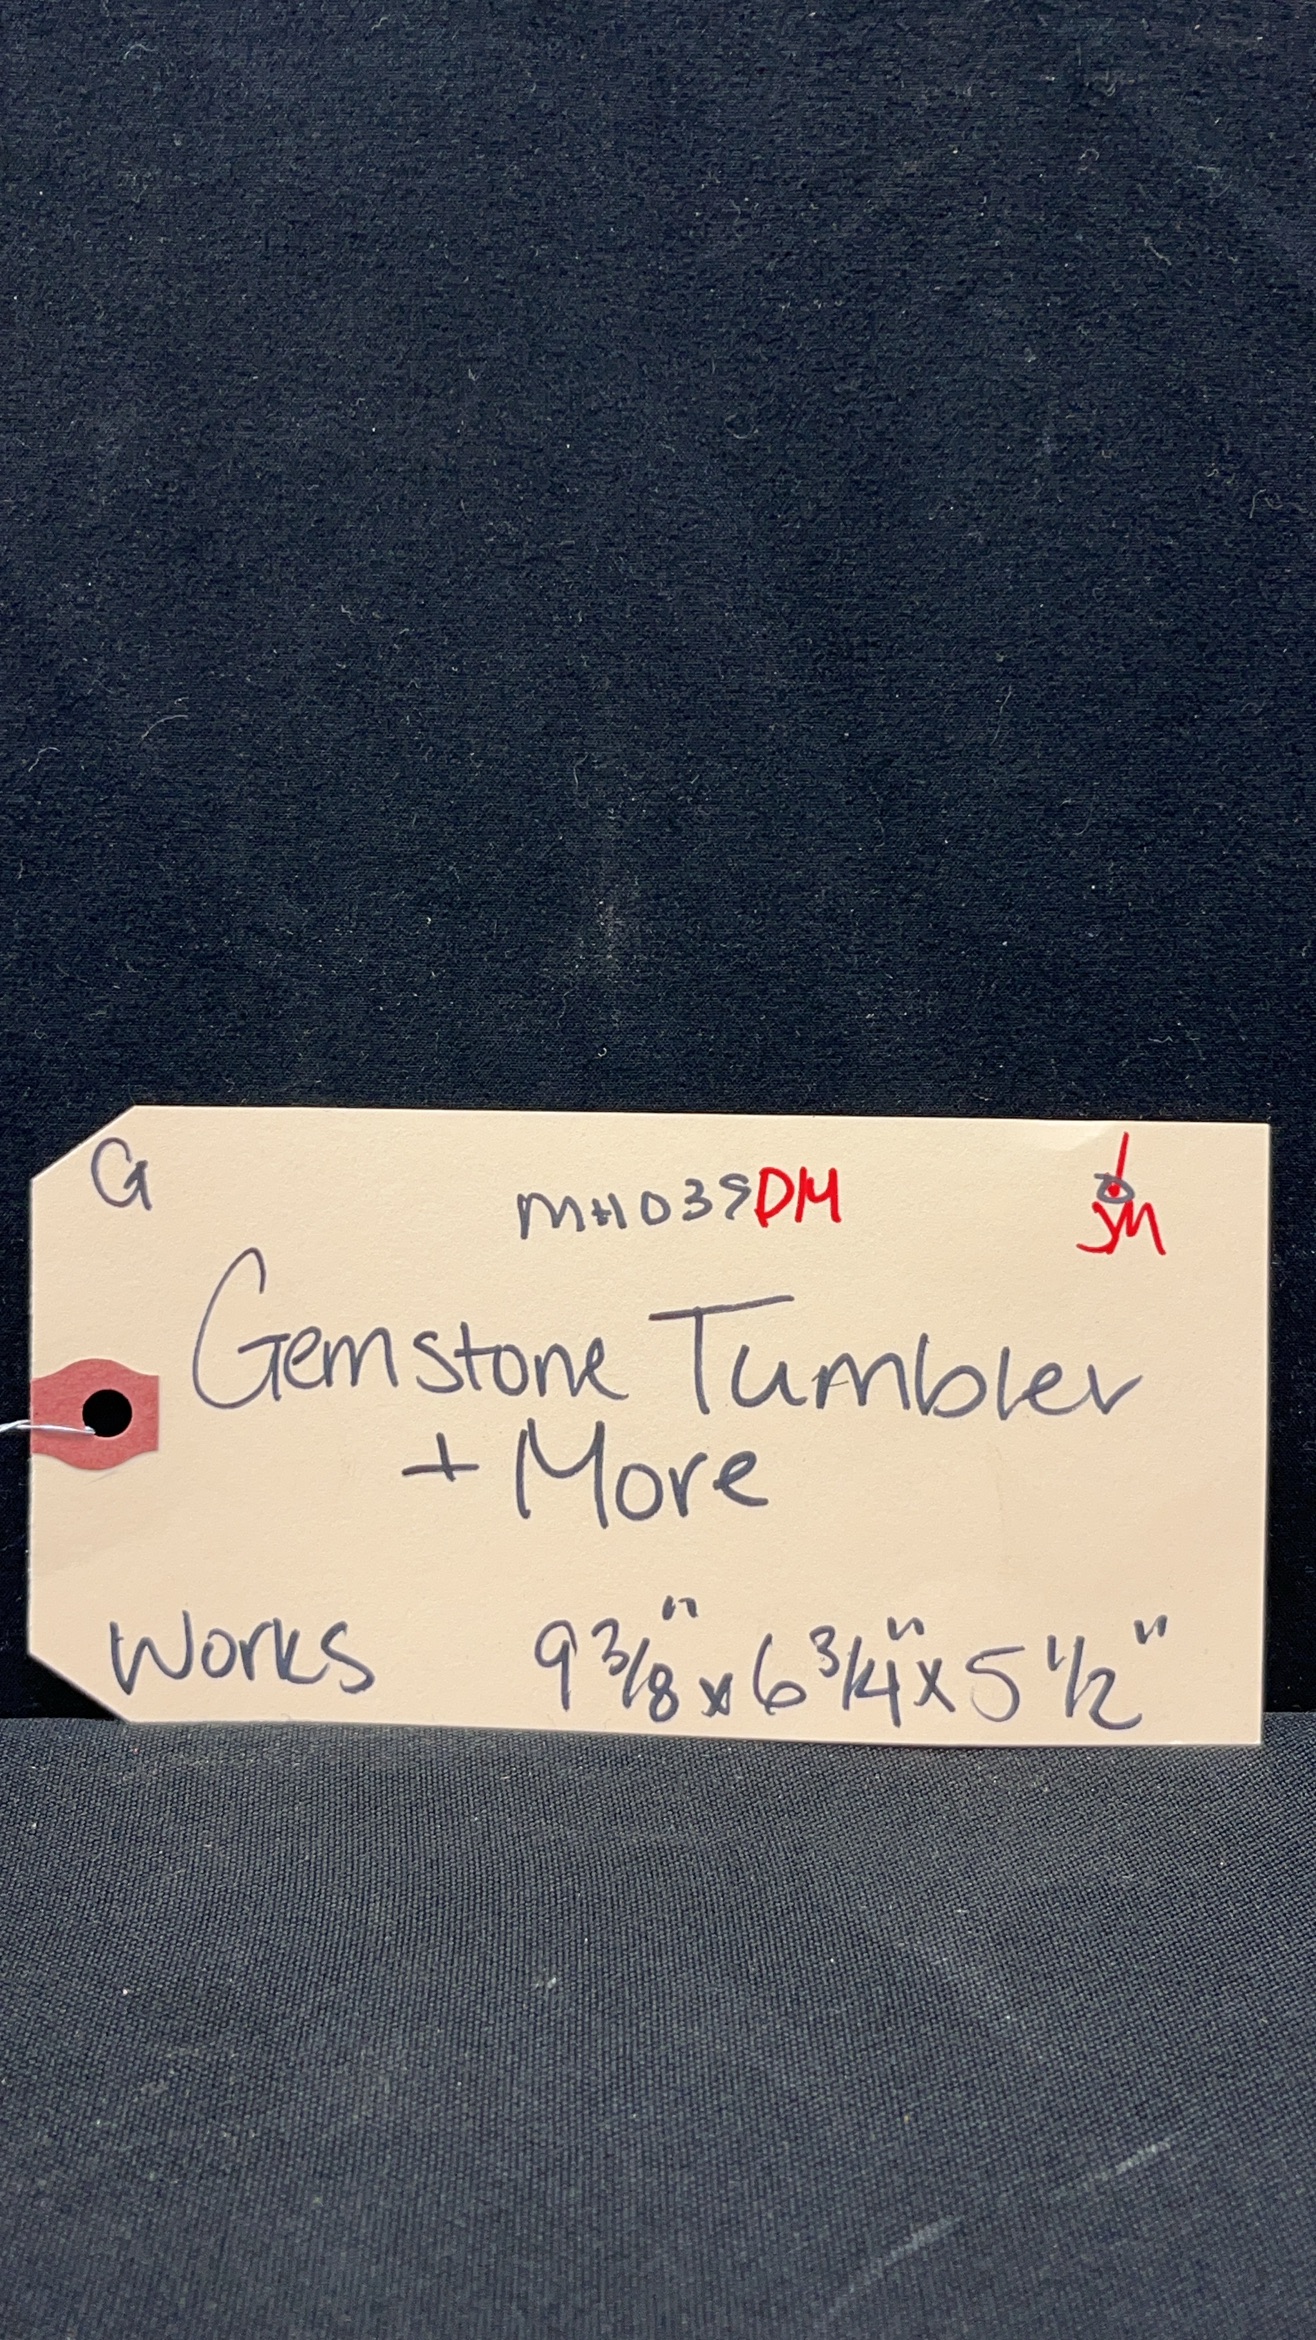 G MH039DM JM
Gemstone Tumbler
+ More
Works 9 3/8" x 6 3/4" x 5 1/2"